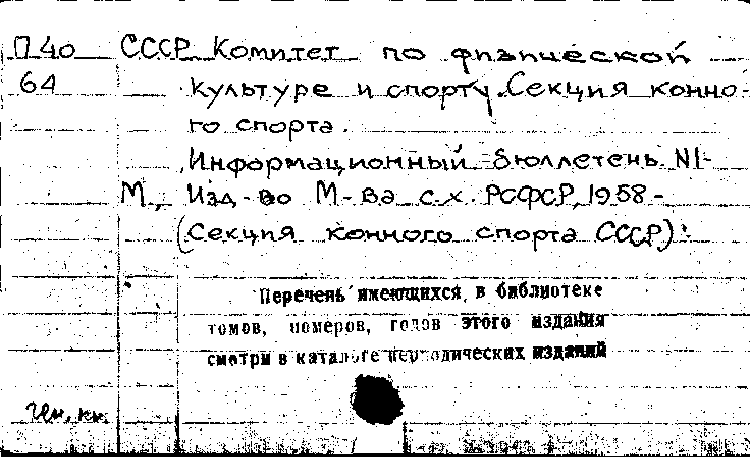 П 40 СССР. Комитет по физической
64 культуре и спорту. Секция конно-
го спорта.
Информационный бюллетень. N1-
М., Изд-во М-ва с.х. РСФСР, 1958-
(Секция конного спорта СССР).
Перечень имеющихся в библиотеке
томов, номеров, годов этого издания
смотри в каталоге периодических изданий